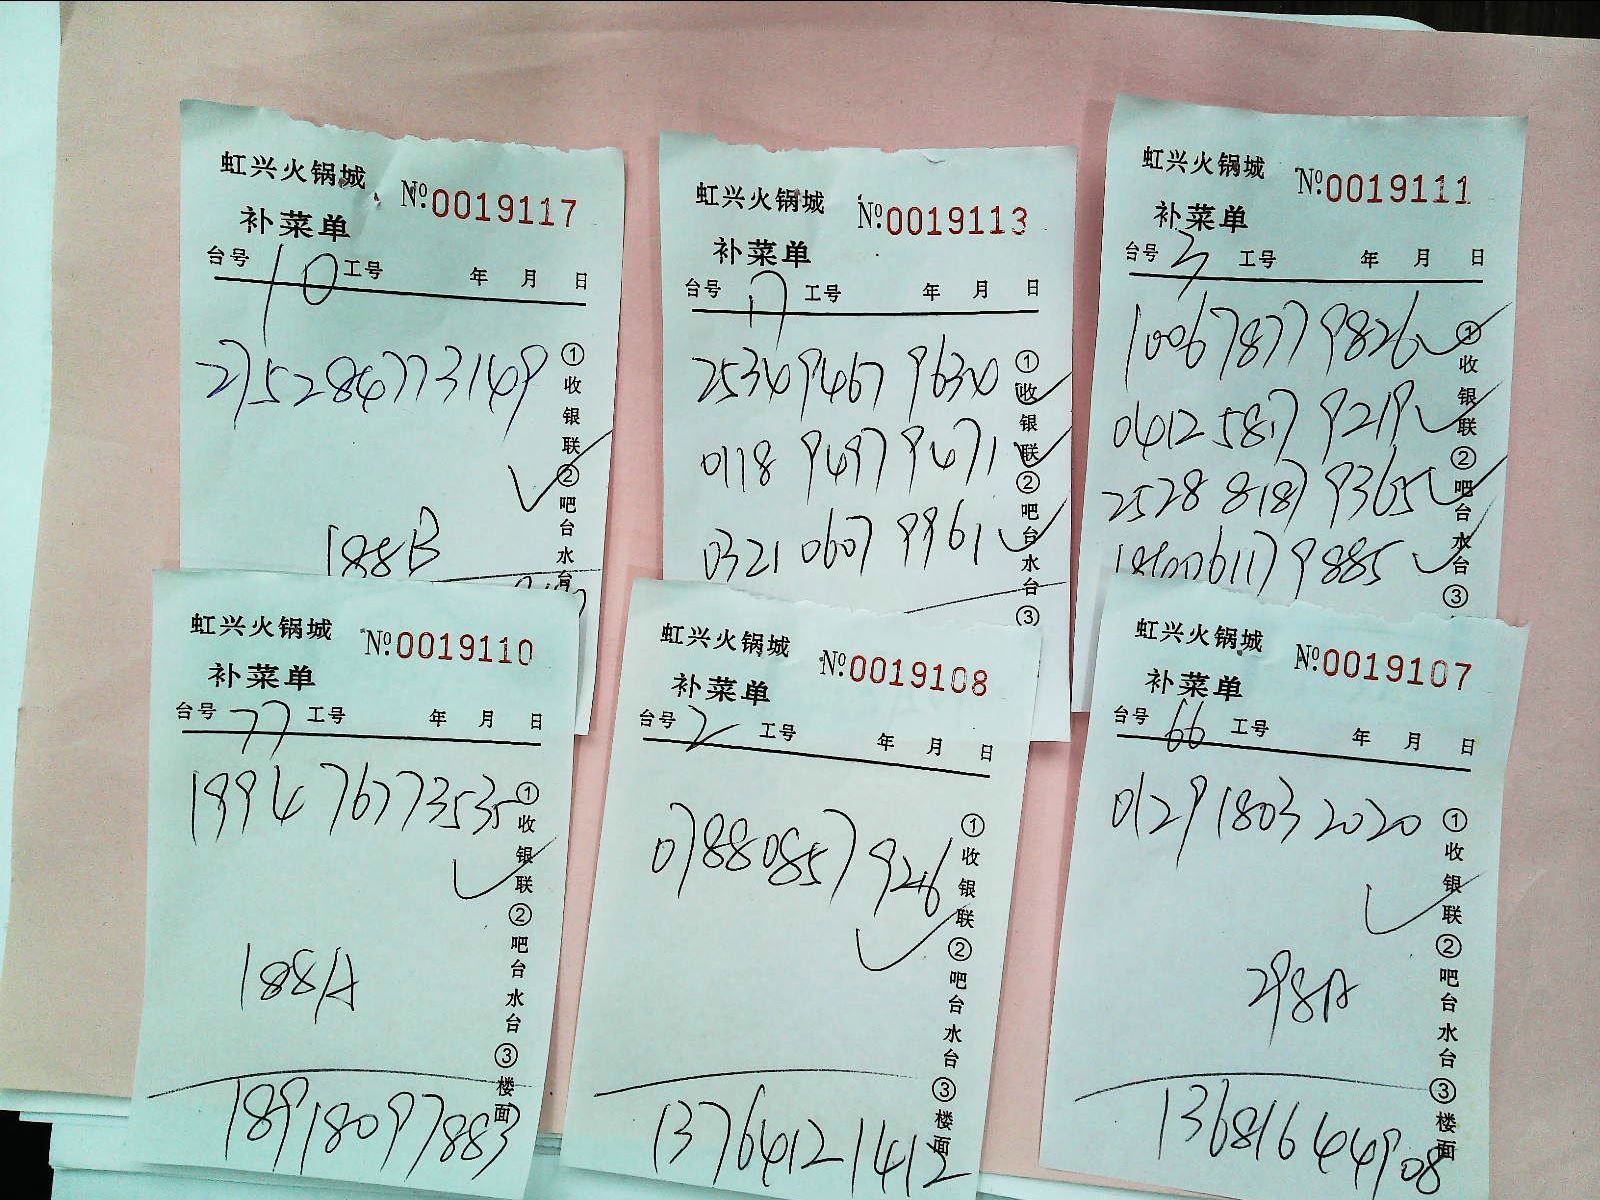 虹兴火锅城 №0019117
补菜单
台号 10 工号 年 月 日
275284773149
188B
①收银联②吧台水台
虹兴火锅城 №0019113
补菜单
台号 17 工号 年 月 日
253494679630
011894979471
032106079961
①收银联②吧台水台③
虹兴火锅城 №0019111
补菜单
台号 3 工号 年 月 日
100678779826
041258179219
252881879365
①收银联②吧台水台③
虹兴火锅城 №0019110
补菜单
台号 77 工号 年 月 日
199476773535
188A
18918097883
①收银联②吧台水台③楼面
虹兴火锅城 №0019108
补菜单
台号 2 工号 年 月 日
13764121412
①收银联②吧台水台③楼面
虹兴火锅城 №0019107
补菜单
台号 66 工号 年 月 日
012918032020
298A
13681644908
①收银联②吧台水台③楼面